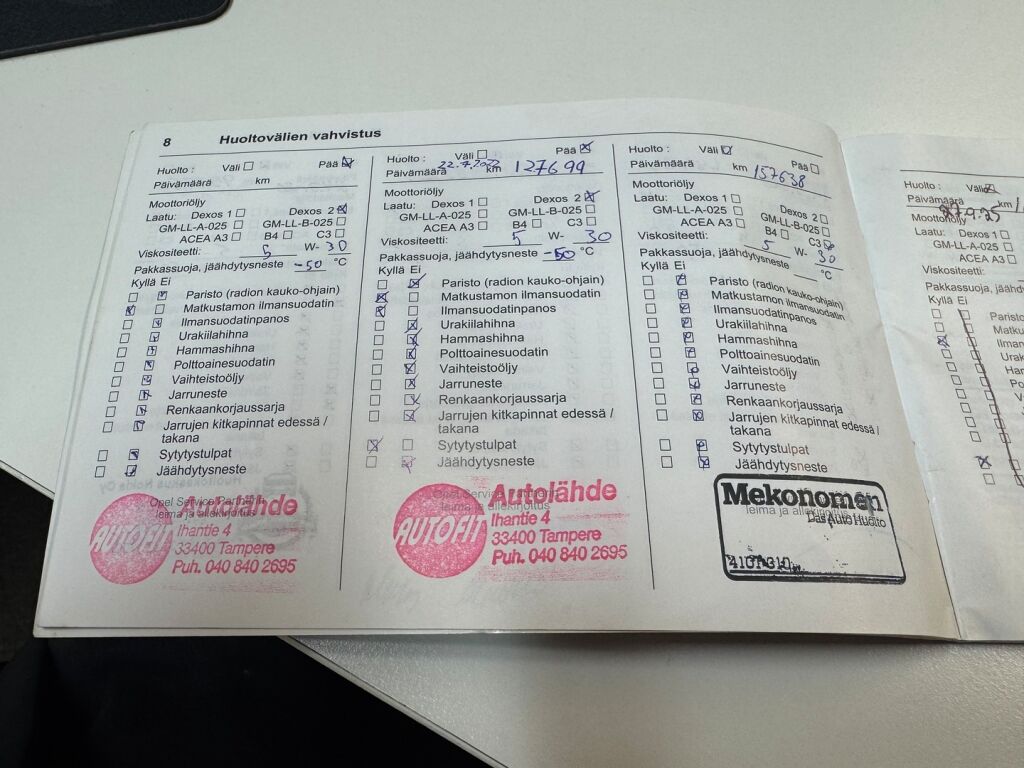 8 Huoltovälien vahvistus
Huolto : Väli ☐ Pää ☒
Päivämäärä km
Moottoriöljy
Laatu: Dexos 1 ☐ Dexos 2 ☒
GM-LL-A-025 ☐ GM-LL-B-025 ☐
ACEA A3 ☐ B4 ☐ C3 ☐
Viskositeetti: 5 W- 30
Pakkassuoja, jäähdytysneste -50 °C
Kyllä Ei
☐ ☒ Paristo (radion kauko-ohjain)
☒ ☐ Matkustamon ilmansuodatin
☐ ☒ Ilmansuodatinpanos
☐ ☒ Urakiilahihna
☐ ☒ Hammashihna
☐ ☒ Polttoainesuodatin
☐ ☒ Vaihteistoöljy
☐ ☒ Jarruneste
☐ ☒ Renkaankorjaussarja
☐ ☒ Jarrujen kitkapinnat edessä /
takana
☐ ☒ Sytytystulpat
☐ ☒ Jäähdytysneste
Opel Service Partnerin
leima ja allekirjoitus
AUTOFIT
Autolähde
Ihantie 4
33400 Tampere
Puh. 040 840 2695
Huolto : Väli ☐ Pää ☒
Päivämäärä 22.7.2022 km 127699
Moottoriöljy
Laatu: Dexos 1 ☐ Dexos 2 ☒
GM-LL-A-025 ☐ GM-LL-B-025 ☐
ACEA A3 ☐ B4 ☐ C3 ☐
Viskositeetti: 5 W- 30
Pakkassuoja, jäähdytysneste -50 °C
Kyllä Ei
☐ ☒ Paristo (radion kauko-ohjain)
☒ ☐ Matkustamon ilmansuodatin
☒ ☐ Ilmansuodatinpanos
☐ ☒ Urakiilahihna
☐ ☒ Hammashihna
☐ ☒ Polttoainesuodatin
☐ ☒ Vaihteistoöljy
☐ ☒ Jarruneste
☐ ☒ Renkaankorjaussarja
☐ ☒ Jarrujen kitkapinnat edessä /
takana
☒ ☐ Sytytystulpat
☐ ☒ Jäähdytysneste
Opel Service Partnerin
leima ja allekirjoitus
AUTOFIT
Autolähde
Ihantie 4
33400 Tampere
Puh. 040 840 2695
Huolto : Väli ☒ Pää ☐
Päivämäärä km 157638
Moottoriöljy
Laatu: Dexos 1 ☐ Dexos 2 ☐
GM-LL-A-025 ☐ GM-LL-B-025 ☐
ACEA A3 ☐ B4 ☐ C3 ☒
Viskositeetti: 5 W- 30
Pakkassuoja, jäähdytysneste °C
Kyllä Ei
☐ ☒ Paristo (radion kauko-ohjain)
☐ ☒ Matkustamon ilmansuodatin
☐ ☒ Ilmansuodatinpanos
☐ ☒ Urakiilahihna
☐ ☒ Hammashihna
☐ ☒ Polttoainesuodatin
☐ ☒ Vaihteistoöljy
☐ ☒ Jarruneste
☐ ☒ Renkaankorjaussarja
☐ ☒ Jarrujen kitkapinnat edessä /
takana
☐ ☒ Sytytystulpat
☐ ☒ Jäähdytysneste
leima ja allekirjoitus
Mekonomen
Das Auto Huolto
Huolto : Väli ☒
Päivämäärä km
Moottoriöljy
Laatu: Dexos 1 ☐
GM-LL-A-025 ☐
ACEA A3 ☐
Viskositeetti:
Pakkassuoja, jäähdy
Kyllä Ei